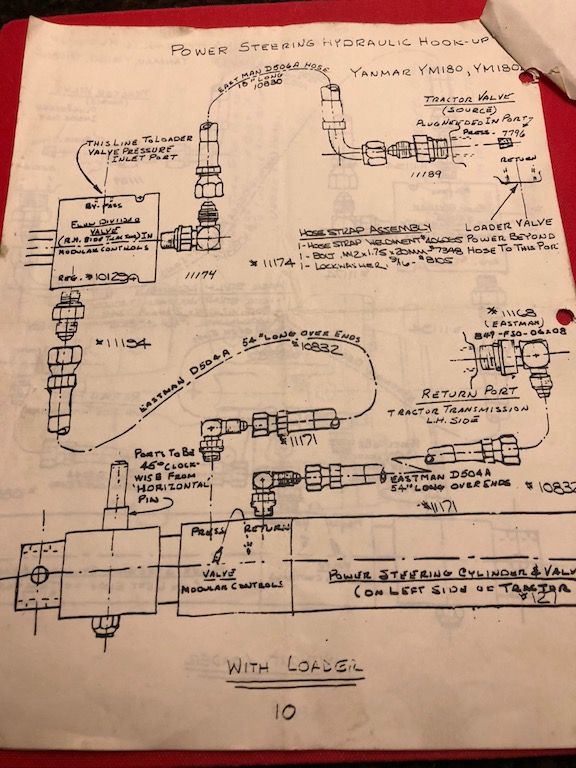 POWER STEERING HYDRAULIC HOOK-UP
YANMAR YM180, YM180
EASTMAN D506A HOSE
18" LONG
10830
TRACTOR VALVE
(SOURCE)
PLUG NEEDED IN PORT
PRESS. 7796
RETURN
THIS LINE TO LOADER
VALVE PRESSURE
INLET PORT
11189
BY-PASS
FLOW DIVIDED
VALVE
(R.H. SIDE TRACTOR) IN
MODULAR CONTROLS
REG. #10129
11174
HOSE STRAP ASSEMBLY
1-HOSE STRAP WELDMENT
1-BOLT M12x1.75x20MM #7848
1-LOCKWASHER #8105
*11174
LOADER VALVE
POWER BEYOND
HOSE TO THIS POR
*11168
(EASTMAN)
*11194
EASTMAN D504A 54" LONG OVER ENDS
*10832
RETURN PORT
TRACTOR TRANSMISSION
L.H. SIDE
*11171
PORTS TO BE
45° CLOCK-
WISE FROM
HORIZONTAL
PIN
EASTMAN D504A
54" LONG OVER ENDS
1083
*11171
PRESS RETURN
VALVE
MODULAR CONTROLS
POWER STEERING CYLINDER & VALV
(ON LEFT SIDE OF TRACTOR
WITH LOADER
10